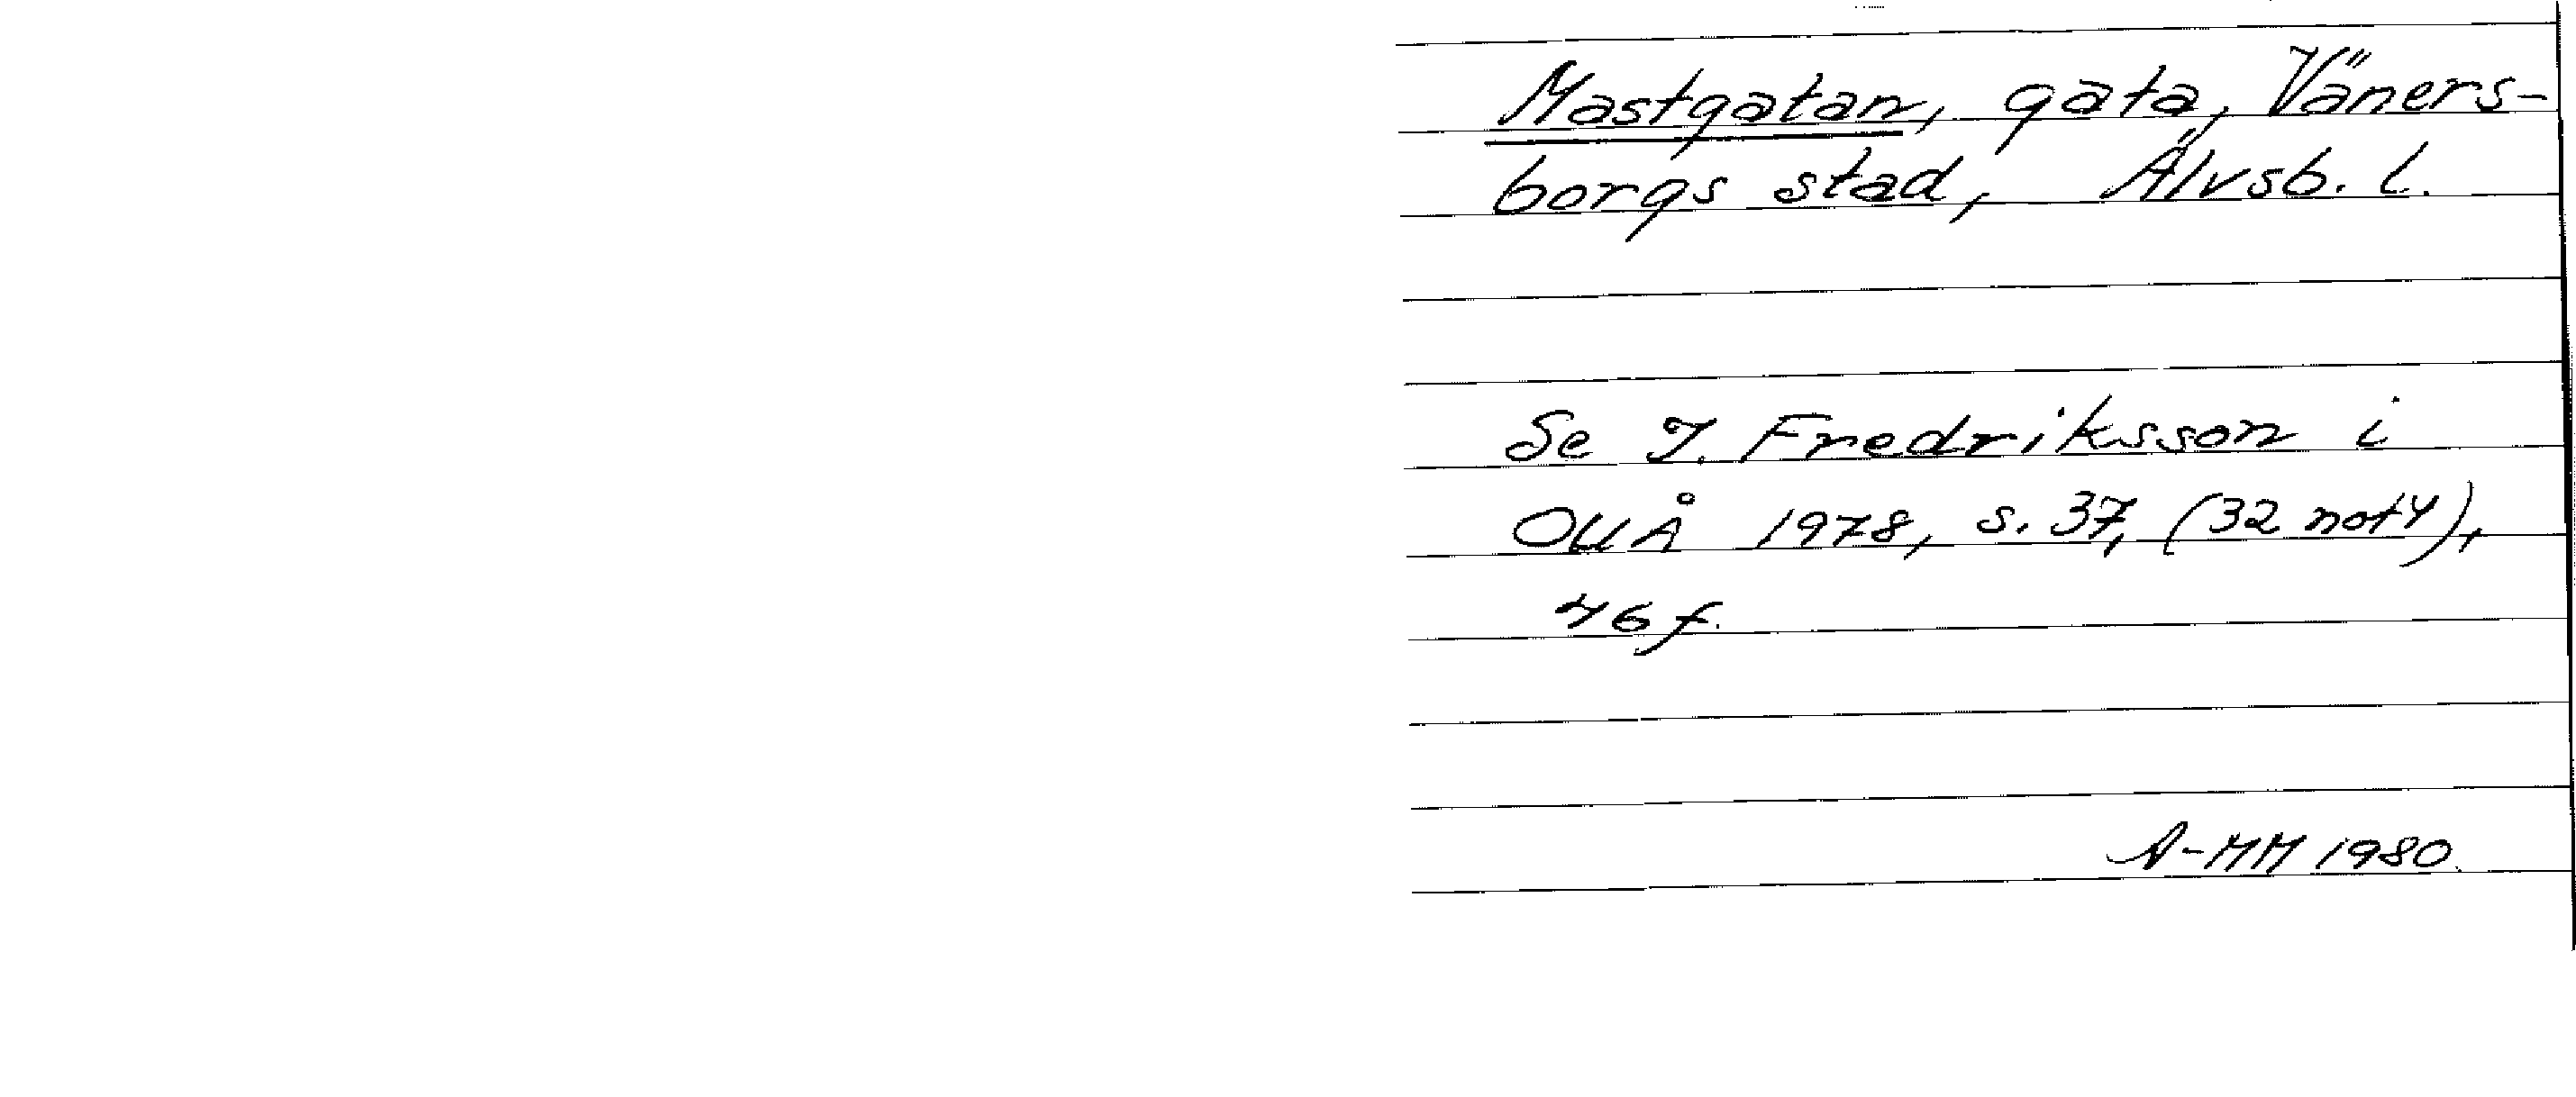 Mastgatan, gata, Väners-
borgs stad, Älvsb. l.
Se I. Fredriksson i
OUÅ 1978, s. 37, (32 not 4),
46 f.
A-MM 1980.